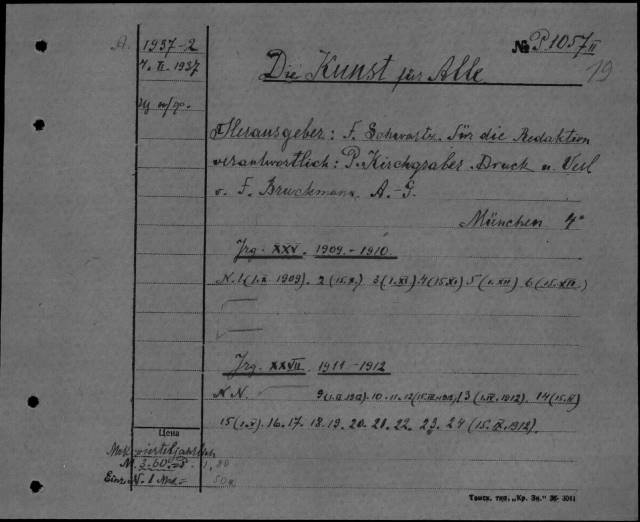 A. 1937-2
4. II. 1937
№ P1057 II
19
Die Kunst für Alle
Herausgeber: F. Schwartz. Für die Redaktion
verantwortlich: P. Kirchgraber Druck u. Verl
v. F. Bruckmann A.-G.
München 4°
Jrg. XXV. 1909.-1910.
N. 1 (1.X 1909). 2 (15.X.) 3 (1.XI) 4 (15.XI) 5 (1.XII) 6 (15.XII)
Jrg. XXVII 1911-1912
N.N. 9 (1.II.1912). 10. 11. 12 13 (1.IV.1912). 14 (15.IV)
15 (1.V). 16. 17. 18. 19. 20. 21. 22. 23. 24 (15.IX.1912).
Цена
Mrk vierteljährlich
M. 3.60 1,80
Einz. N. 1 Mrk = 50к
Томск. тип. „Кр. Зн." 36-3041